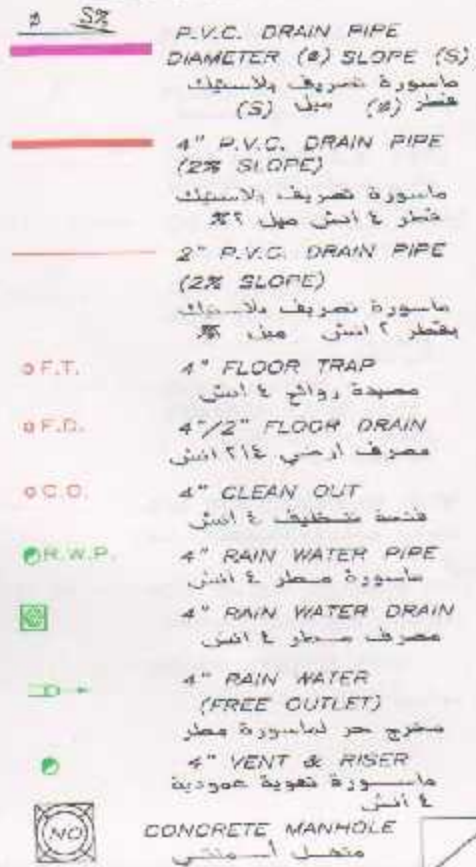 ø S%
P.V.C. DRAIN PIPE
DIAMETER (ø) SLOPE (S)
ماسورة تصريف بلاستيك
قطر (ø) ميل (S)
4" P.V.C. DRAIN PIPE
(2% SLOPE)
ماسورة تصريف بلاستيك
قطر ٤ انش ميل ٢%
2" P.V.C. DRAIN PIPE
(2% SLOPE)
ماسورة تصريف بلاستيك
بقطر ٢ انش ميل
F.T.
4" FLOOR TRAP
مصيدة روائح ٤ انش
F.D.
4"/2" FLOOR DRAIN
مصرف ارضي ٢/٤ انش
C.O.
4" CLEAN OUT
فتحة تنظيف ٤ انش
R.W.P.
4" RAIN WATER PIPE
ماسورة مطر ٤ انش
4" RAIN WATER DRAIN
مصرف مطر ٤ انش
4" RAIN WATER
(FREE OUTLET)
مخرج حر لماسورة مطر
4" VENT & RISER
ماسورة تهوية عمودية
٤ انش
NO
CONCRETE MANHOLE
منهل أسمنتي